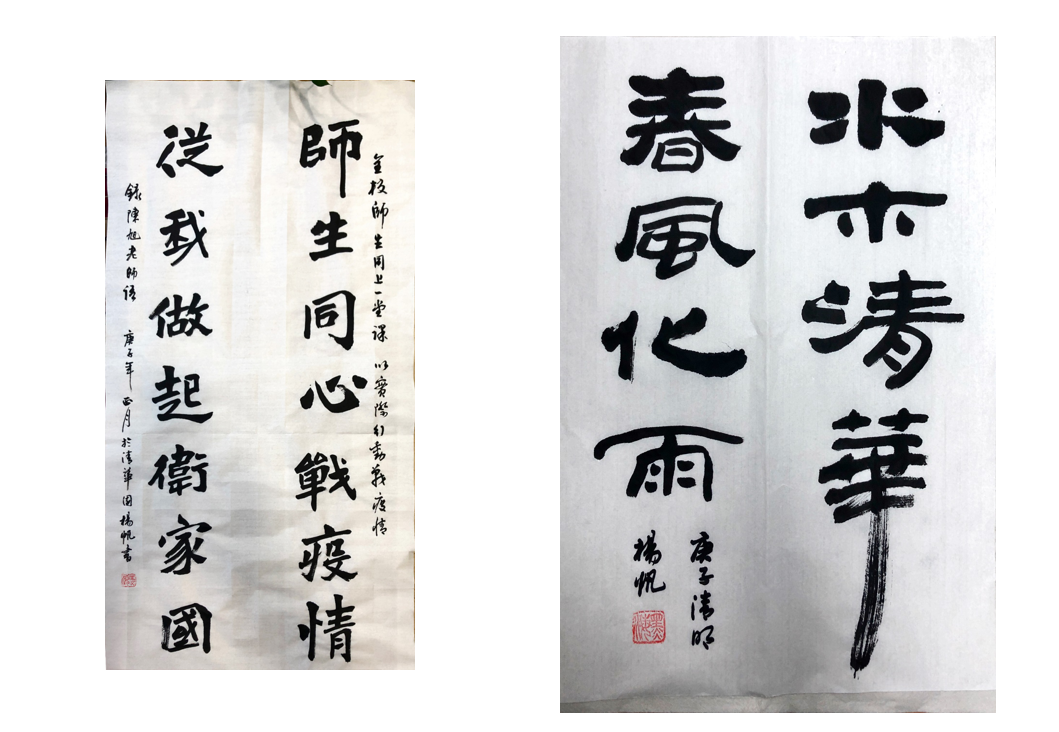 全校師生同上一堂課 以實際行動戰疫情
師生同心戰疫情
從我做起衛家國
錄陳旭老師語 庚子年正月於清華園楊帆書
水木清華
春風化雨
庚子清明
楊帆